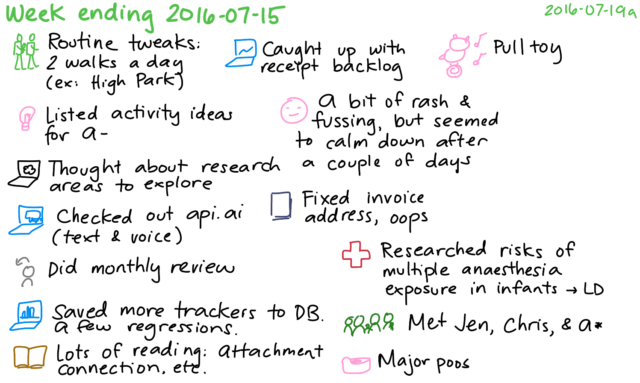 Week ending 2016-07-15
2016-07-19a
Routine tweaks:
2 walks a day
(ex: High Park)
Listed activity ideas
for a-
Thought about research
areas to explore
Checked out api.ai
(text & voice)
Did monthly review
Saved more trackers to DB.
A few regressions.
Lots of reading: attachment
connection, etc.
Caught up with
receipt backlog
Pull toy
A bit of rash &
fussing, but seemed
to calm down after
a couple of days
Fixed invoice
address, oops
Researched risks of
multiple anaesthesia
exposure in infants → LD
Met Jen, Chris, & a*
Major poos